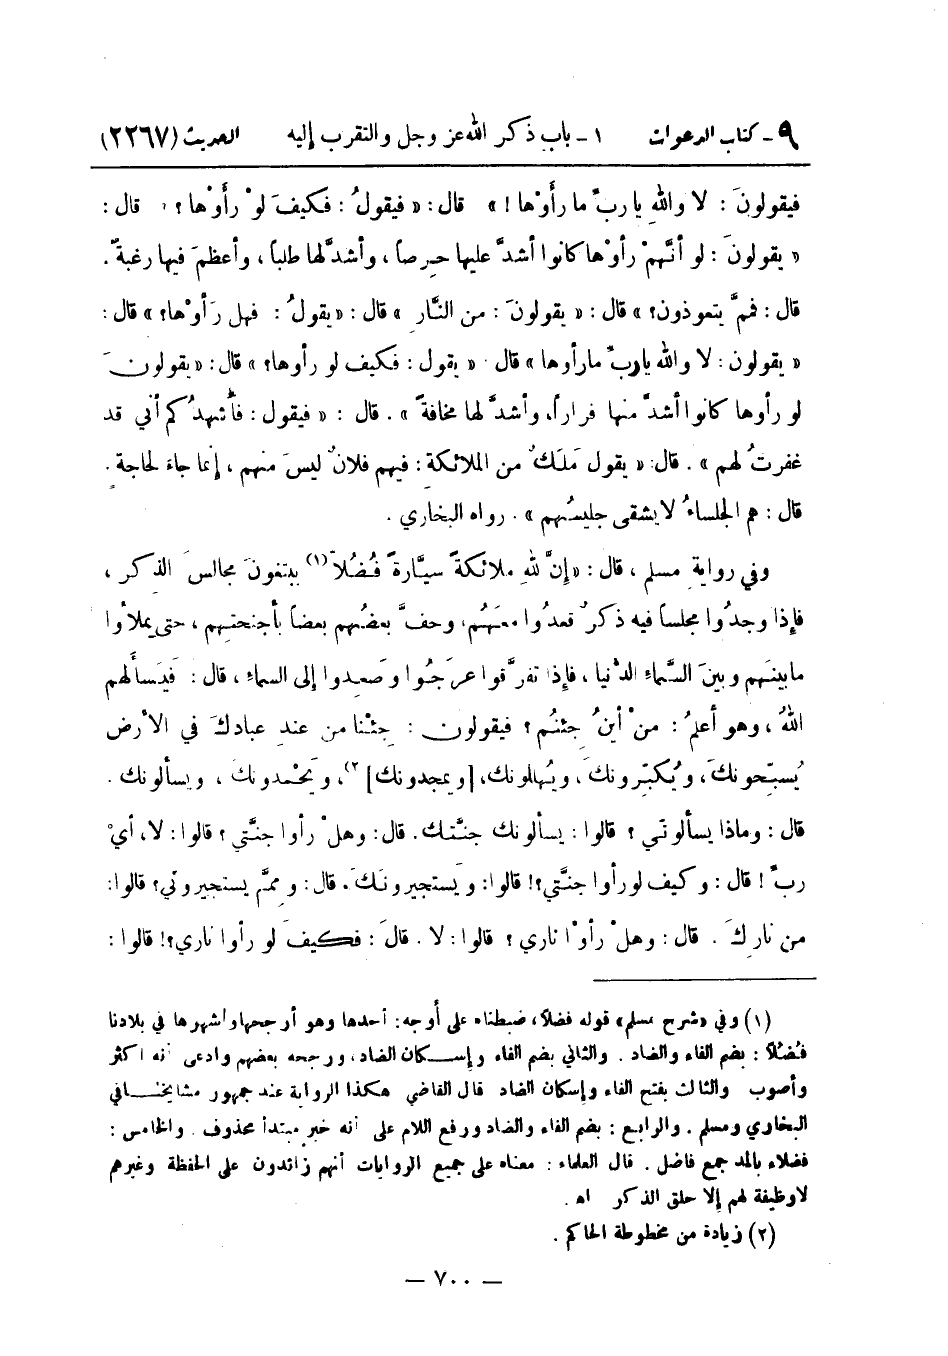 ٩ - كتاب الدعوات ١ - باب ذكر الله عز وجل والتقرب إليه الحديث (٢٢٦٧)
فيقولونَ : لا واللهِ يا ربِّ ما رأَوْها ! » قال : « فيقولُ : فكيفَ لوْ رأَوْها ؟ قال :
« يقولونَ : لو أنَّهمْ رأَوْها كانوا أشدَّ عليها حِرصاً ، وأشدَّ لها طلباً ، وأعظمَ فيها رغبةً .
قال : فممَّ يتعوذون؟ » قال : « يقولونَ : من النَّارِ » قال : « يقولُ : فهل رَأوْها؟ » قال :
« يقولون : لا والله يا ربِّ ما رأوها » قال « يقول : فكيف لو رأوها؟ » قال : « يقولونَ
لو رأوها كانوا أشدَّ منها فراراً، وأشدَّ لها مخافةً » . قال : « فيقول : فأُشهدُكم أني قد
غفرتُ لهم » . قال : « يقول مَلَكٌ من الملائكة : فيهم فلانٌ ليسَ منهم ، إنما جاءَ لحاجةٍ .
قال : هم الجلساءُ لا يشقى جليسُهم » . رواه البخاري .
وفي روايةِ مسلمٍ ، قال : « إنَّ للهِ ملائكةً سيَّارةً فُضُلاً (١) يبتغونَ مجالسَ الذكر ،
فإذا وجدُوا مجلساً فيه ذكرٌ قعدُوا معَهُم، وحفَّ بعضُهم بعضاً بأجنحتِهم ، حتى يملأوا
ما بينَهم وبينَ السَّماءِ الدُّنيا ، فإذا تفرَّقوا عرَجُوا وصَعِدوا إلى السماءِ ، قال : فيَسألهم
اللهُ ، وهو أعلمُ : منْ أينَ جئتُم ؟ فيقولون : جِئْنا من عندِ عبادكَ في الأرْض
يُسبِّحونكَ، ويُكبِّرونكَ، ويُهلِّلونك، [ويمجدونك] (٢)، ويَحْمدونك ، ويسألونك .
قال : وماذا يسألوني ؟ قالوا : يسألونك جنَّتَك. قال : وهلْ رأوا جنَّتي ؟ قالوا : لا، أيْ
ربِّ ! قال : وكيف لو رأوا جنَّتي؟! قالوا: ويَستجيرونَكَ. قال: وممَّ يستجيروني؟ قالوا:
من ناركَ . قال : وهلْ رأوْا ناري ؟ قالوا : لا . قالَ : فكيفَ لو رأوا ناري؟! قالوا :
(١) وفي «شرح مسلم» قوله فضلاً، ضبطناه على أوجه: أحدها وهو أرجحها وأشهرها في بلادنا
فُضُلاً : بضم الفاء والضاد . والثاني بضم الفاء وإسكان الضاد، ورجحه بعضهم وادعى أنه اكثر
وأصوب والثالث بفتح الفاء وإسكان الضاد قال القاضي هكذا الرواية عند جمهور مشايخنا في
البخاري ومسلم . والرابع : بضم الفاء والضاد ورفع اللام على أنه خبر مبتدأ محذوف والخامس :
فضلاء بالمد جمع فاضل . قال العلماء : معناه على جميع الروايات أنهم زائدون على الحفظة وغيرهم
لا وظيفة لهم إلا حلق الذكر اه .
(٢) زيادة من مخطوطة الحاكم .
— ٧٠٠ —